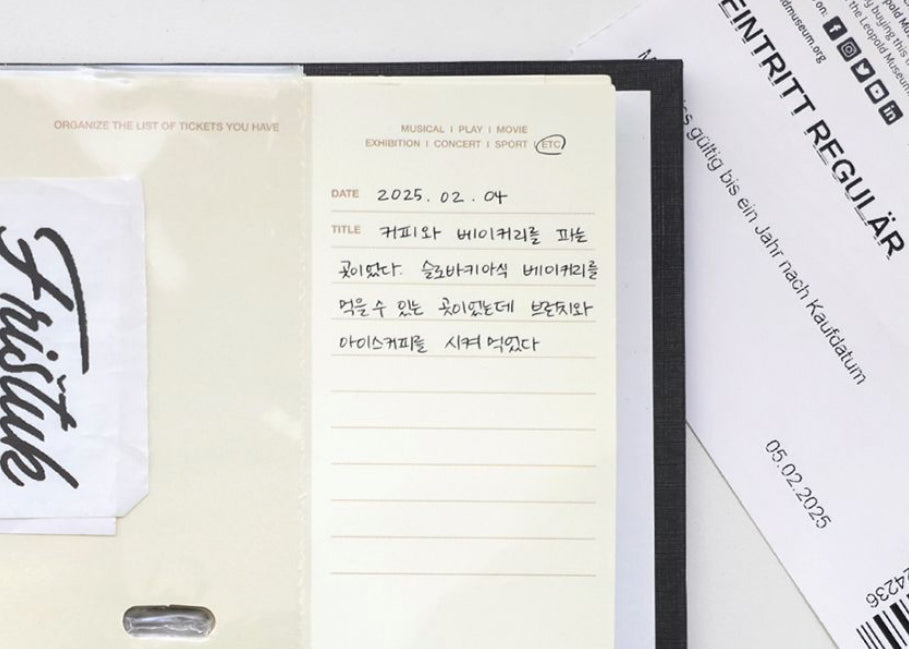 ORGANIZE THE LIST OF TICKETS YOU HAVE
Frištuk
MUSICAL I PLAY I MOVIE
EXHIBITION I CONCERT I SPORT I ETC
DATE 2025. 02. 04
TITLE 커피와 베이커리를 파는
곳이었다. 슬로바키아식 베이커리를
먹을 수 있는 곳이었는데 브런치와
아이스커피를 시켜 먹었다
on:
buying this
the Leopold Museum
dmuseum.org
EINTRITT REGULÄR
gültig bis ein Jahr nach Kaufdatum
05.02.2025
24236